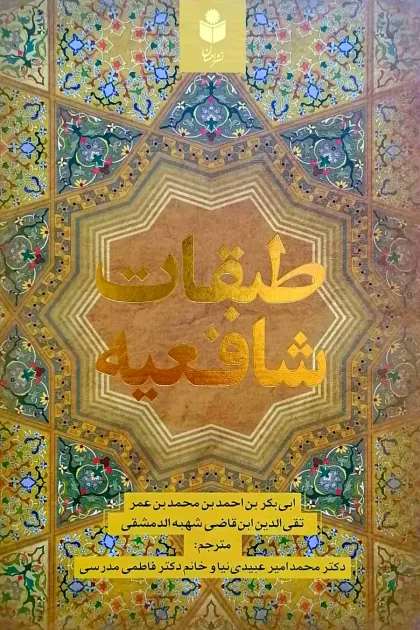 نشر احسان
طبقات
شافعیه
ابی بکر بن احمد بن محمد بن عمر
تقی الدین ابن قاضی شهبه الدمشقی
مترجم:
دکتر محمد امیر عبیدی نیا و خانم دکتر فاطمی مدرسی